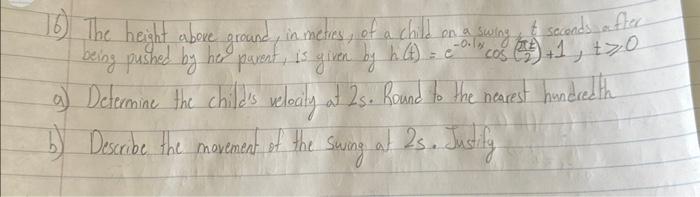 16) The height above ground, in metres, of a child on a swing, t seconds after
being pushed by her parent, is given by h(t) = e^-0.1x cos(πt/2) + 1, t ≥ 0
a) Determine the child's velocity at 2s. Round to the nearest hundredth
b) Describe the movement of the swing at 2s. Justify